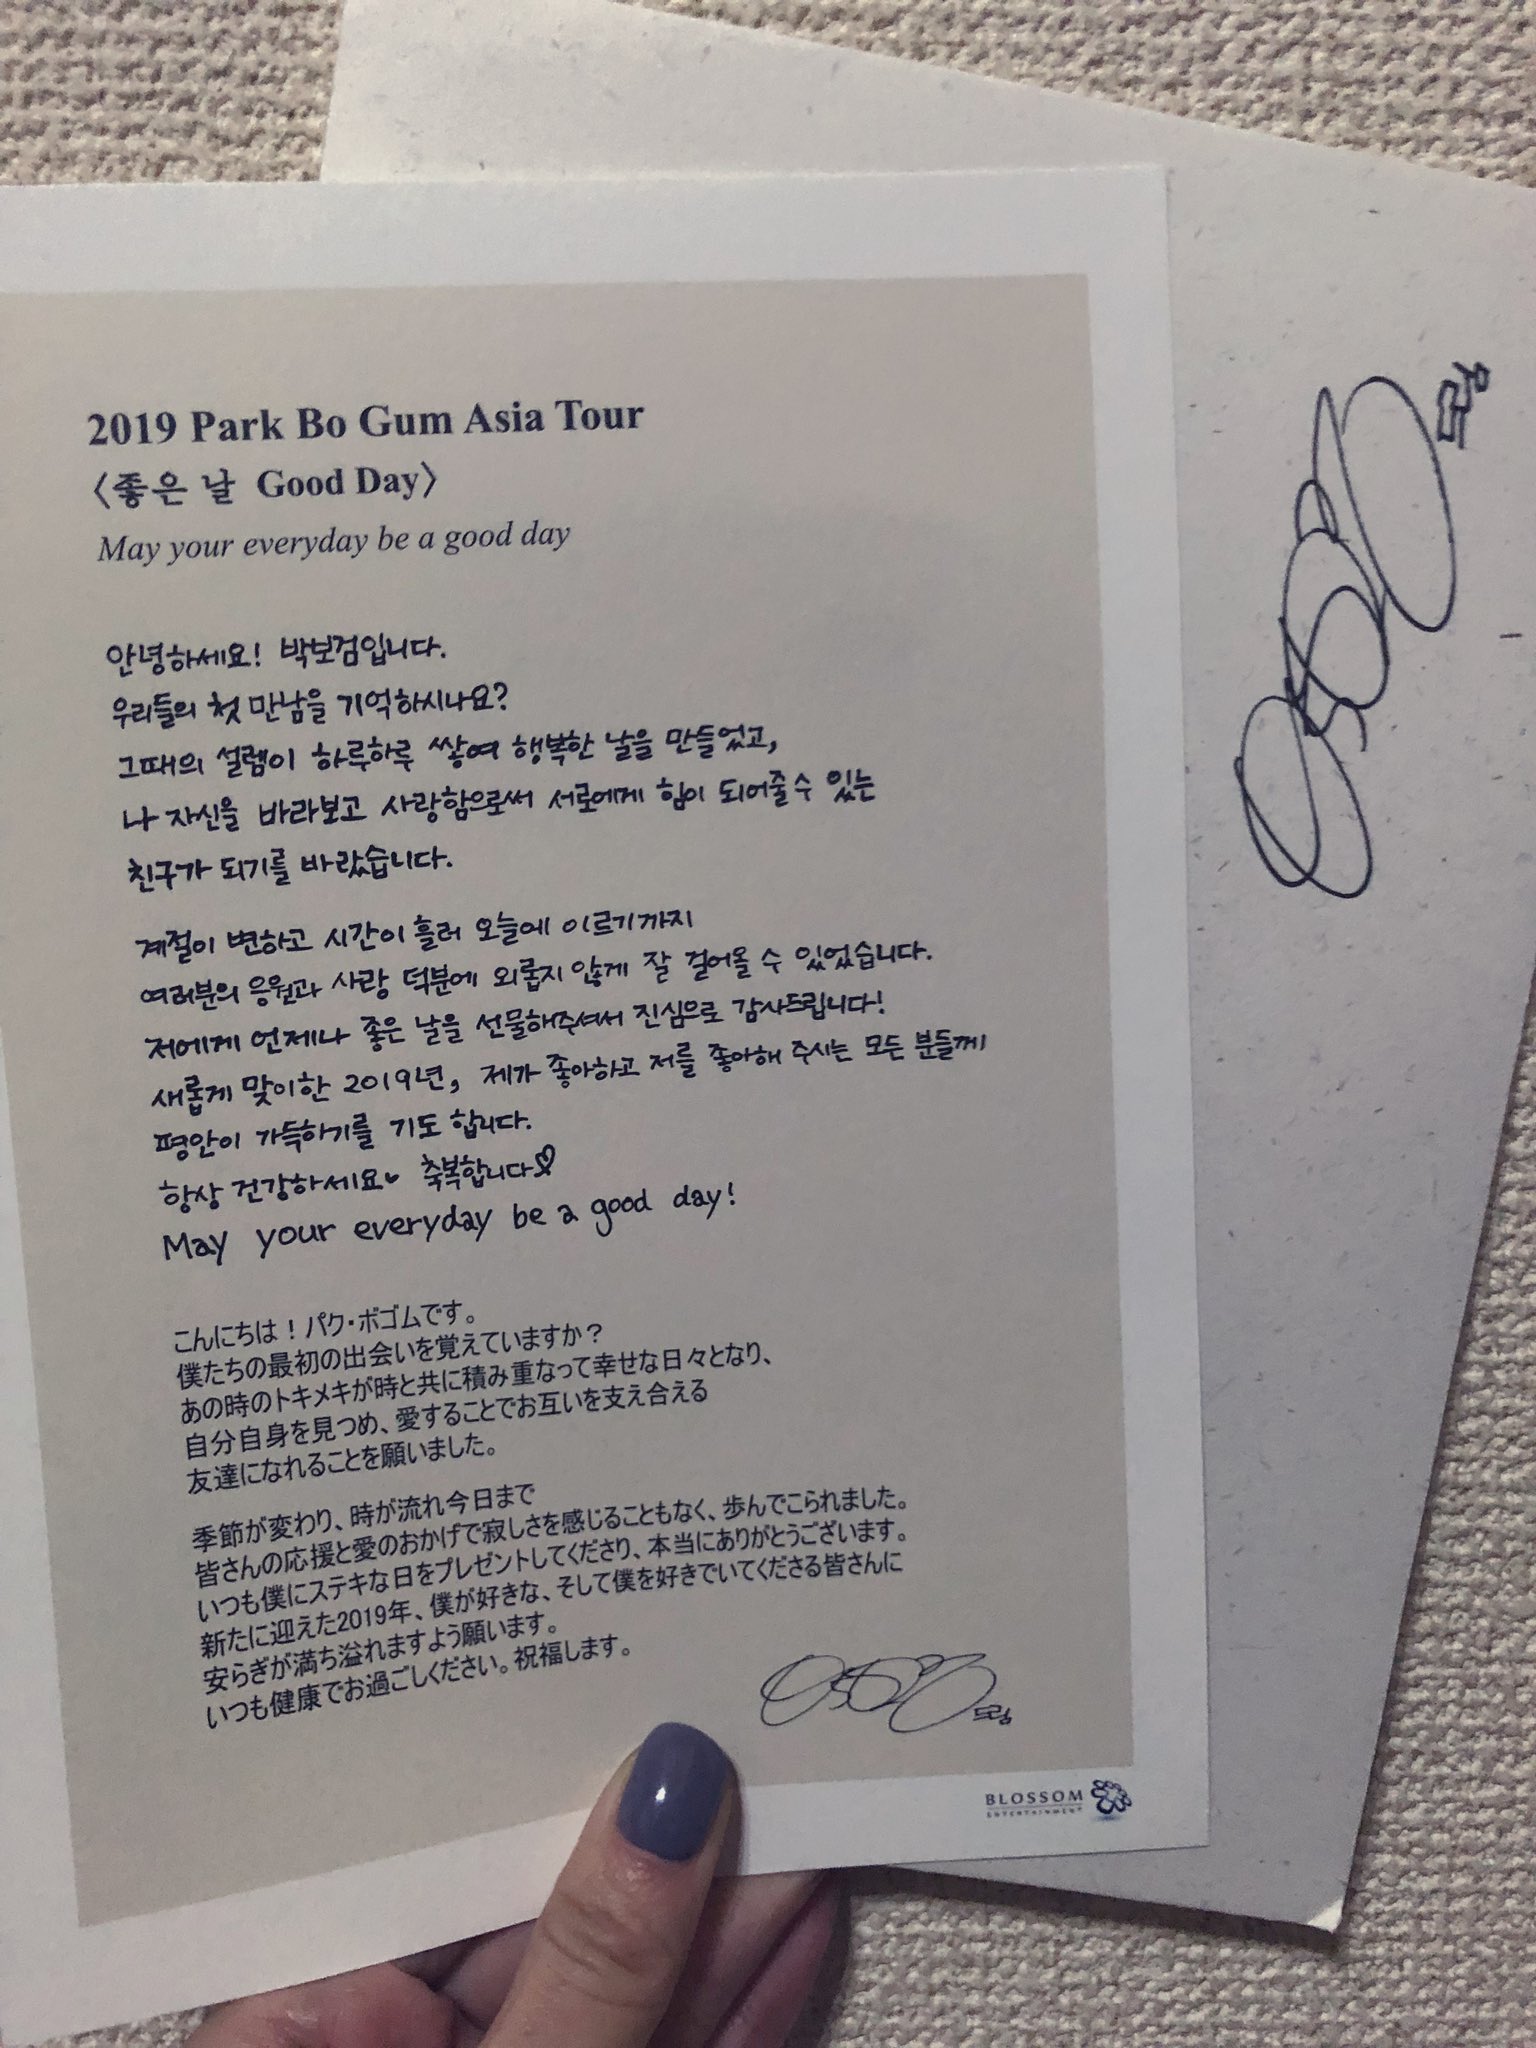 2019 Park Bo Gum Asia Tour
〈좋은 날 Good Day〉
May your everyday be a good day
안녕하세요! 박보검입니다.
우리들의 첫 만남을 기억하시나요?
그때의 설렘이 하루하루 쌓여 행복한 날을 만들었고,
나 자신을 바라보고 사랑함으로써 서로에게 힘이 되어줄 수 있는
친구가 되기를 바랐습니다.
계절이 변하고 시간이 흘러 오늘에 이르기까지
여러분의 응원과 사랑 덕분에 외롭지 않게 잘 걸어올 수 있었습니다.
저에게 언제나 좋은 날을 선물해주셔서 진심으로 감사드립니다!
새롭게 맞이한 2019년, 제가 좋아하고 저를 좋아해 주시는 모든 분들께
평안이 가득하기를 기도 합니다.
항상 건강하세요♥ 축복합니다♡
May your everyday be a good day!
こんにちは！パク・ボゴムです。
僕たちの最初の出会いを覚えていますか？
あの時のトキメキが時と共に積み重なって幸せな日々となり、
自分自身を見つめ、愛することでお互いを支え合える
友達になれることを願いました。
季節が変わり、時が流れ今日まで
皆さんの応援と愛のおかげで寂しさを感じることもなく、歩んでこられました。
いつも僕にステキな日をプレゼントしてくださり、本当にありがとうございます。
新たに迎えた2019年、僕が好きな、そして僕を好きでいてくださる皆さんに
安らぎが満ち溢れますよう願います。
いつも健康でお過ごしください。祝福します。
드림
BLOSSOM
ENTERTAINMENT